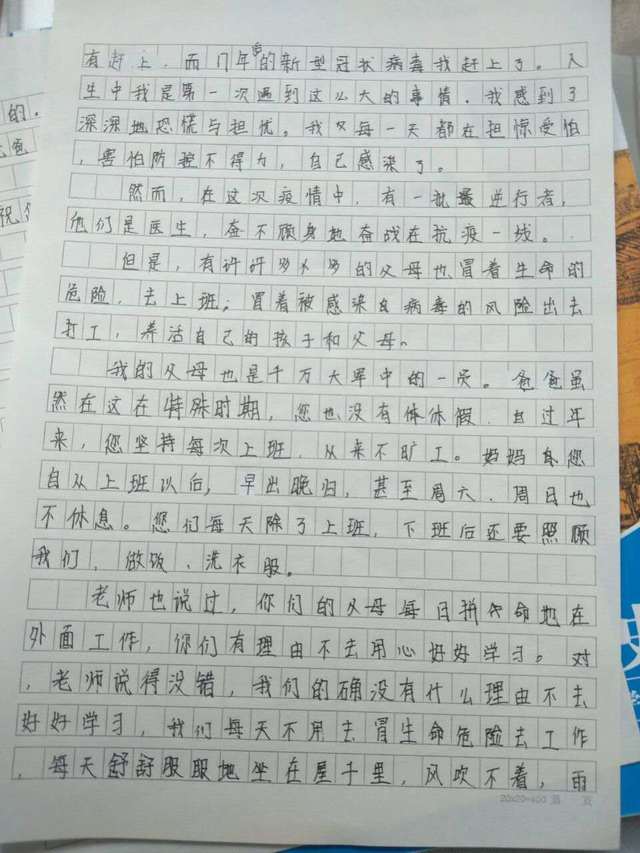 有赶上，而门年的新型冠状病毒我赶上了。人
生中我是第一次遇到这么大的事情，我感到了
深深地恐慌与担忧。我父母一天都在担惊受怕
，害怕防控不得力，自己感染了。
然而，在这次疫情中，有一批最逆行者，
他们是医生，奋不顾身地奋战在抗疫一线。
但是，有许许多多的父母也冒着生命的
危险，去上班；冒着被感染病毒的风险出去
打工，养活自己的孩子和父母。
我的父母也是千万大军中的一员。爸爸虽
然在这在特殊时期，您也没有休休假，自过年
来，您坚持每次上班，从来不旷工。妈妈您
自从上班以后，早出晚归，甚至周六、周日也
不休息。您们每天除了上班，下班后还要照顾
我们，做饭、洗衣服。
老师也说过，你们的父母每日拼命地在
外面工作，你们有理由不去用心好好学习。对
，老师说得没错，我们的确没有什么理由不去
好好学习，我们每天不用去冒生命危险去工作
，每天舒舒服服地坐在屋子里，风吹不着，雨
20×20=400 第 页
的，
爸
祝